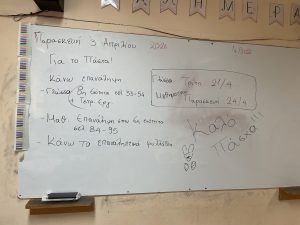 ΗΜΕΡΑ
Παρασκευή 3 Απριλίου 2026
Για το Πάσχα!
Κάνω επανάληψη
- Γλώσσα 8η ενότητα σελ 33-54
Τετρ. Εργ.
- Μαθ. Επανάληψη στην 6η ενότητα
σελ 84-95
- Κάνω το επαναληπτικό φυλλάδιο
Γλώσσα Τρίτη 21/4
Μαθηματικά Παρασκευή 24/4
Καλό
Πάσχα!!!